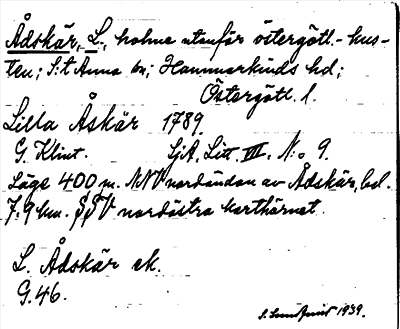 Ådskär, L., holme utanför östergötl.-kus-
ten; S:t Anna sn; Hammarkinds hd;
Östergötl. l.
Lilla Åskär 1789.
G. Klint. SjA, Litt. III, N:o 9.
Läge 400 m. NNV nordändan av Ådskär, bel.
7.9 km. SSV nordöstra karthörnet.
L. Ådskär ek.
G.46.
S. Sundqvist 1939.